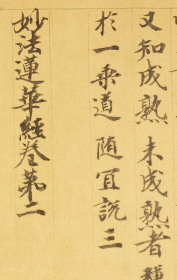 又知成熟未成熟者種
於一乘道随冝說三
妙法蓮華經卷第二